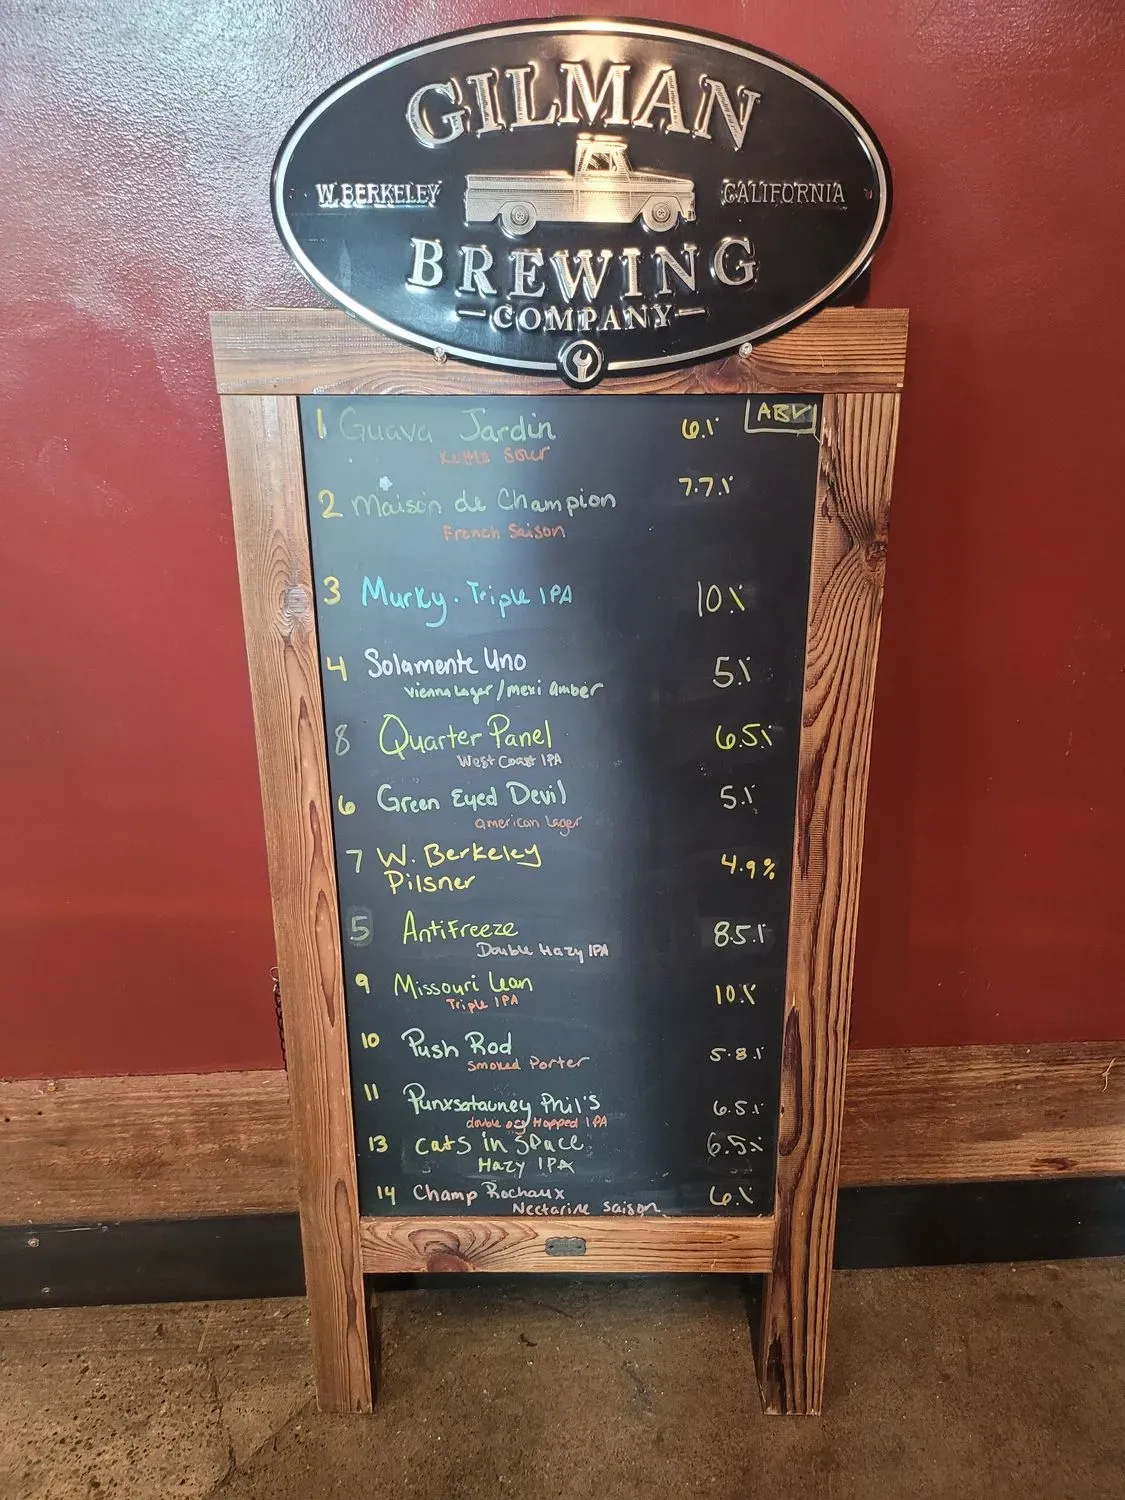 GILMAN
W. BERKELEY CALIFORNIA
BREWING
COMPANY
ABV
1 Guava Jardin 6%
Kettle Sour
2 Maison de Champion 7.7%
French Saison
3 Murky. Triple IPA 10%
4 Solamente Uno 5%
Vienna Lager/mexi amber
8 Quarter Panel 6.5%
West Coast IPA
6 Green Eyed Devil 5%
American Lager
7 W. Berkeley 4.9%
Pilsner
5 AntiFreeze 8.5%
Double Hazy IPA
9 Missouri Lean 10%
Triple IPA
10 Push Rod 5.8%
Smoked Porter
11 Punxsatauney Phil's 6.5%
double dry Hopped IPA
13 Cats in Space 6.5%
Hazy IPA
14 Champ Rochaux 6%
Nectarine Saison